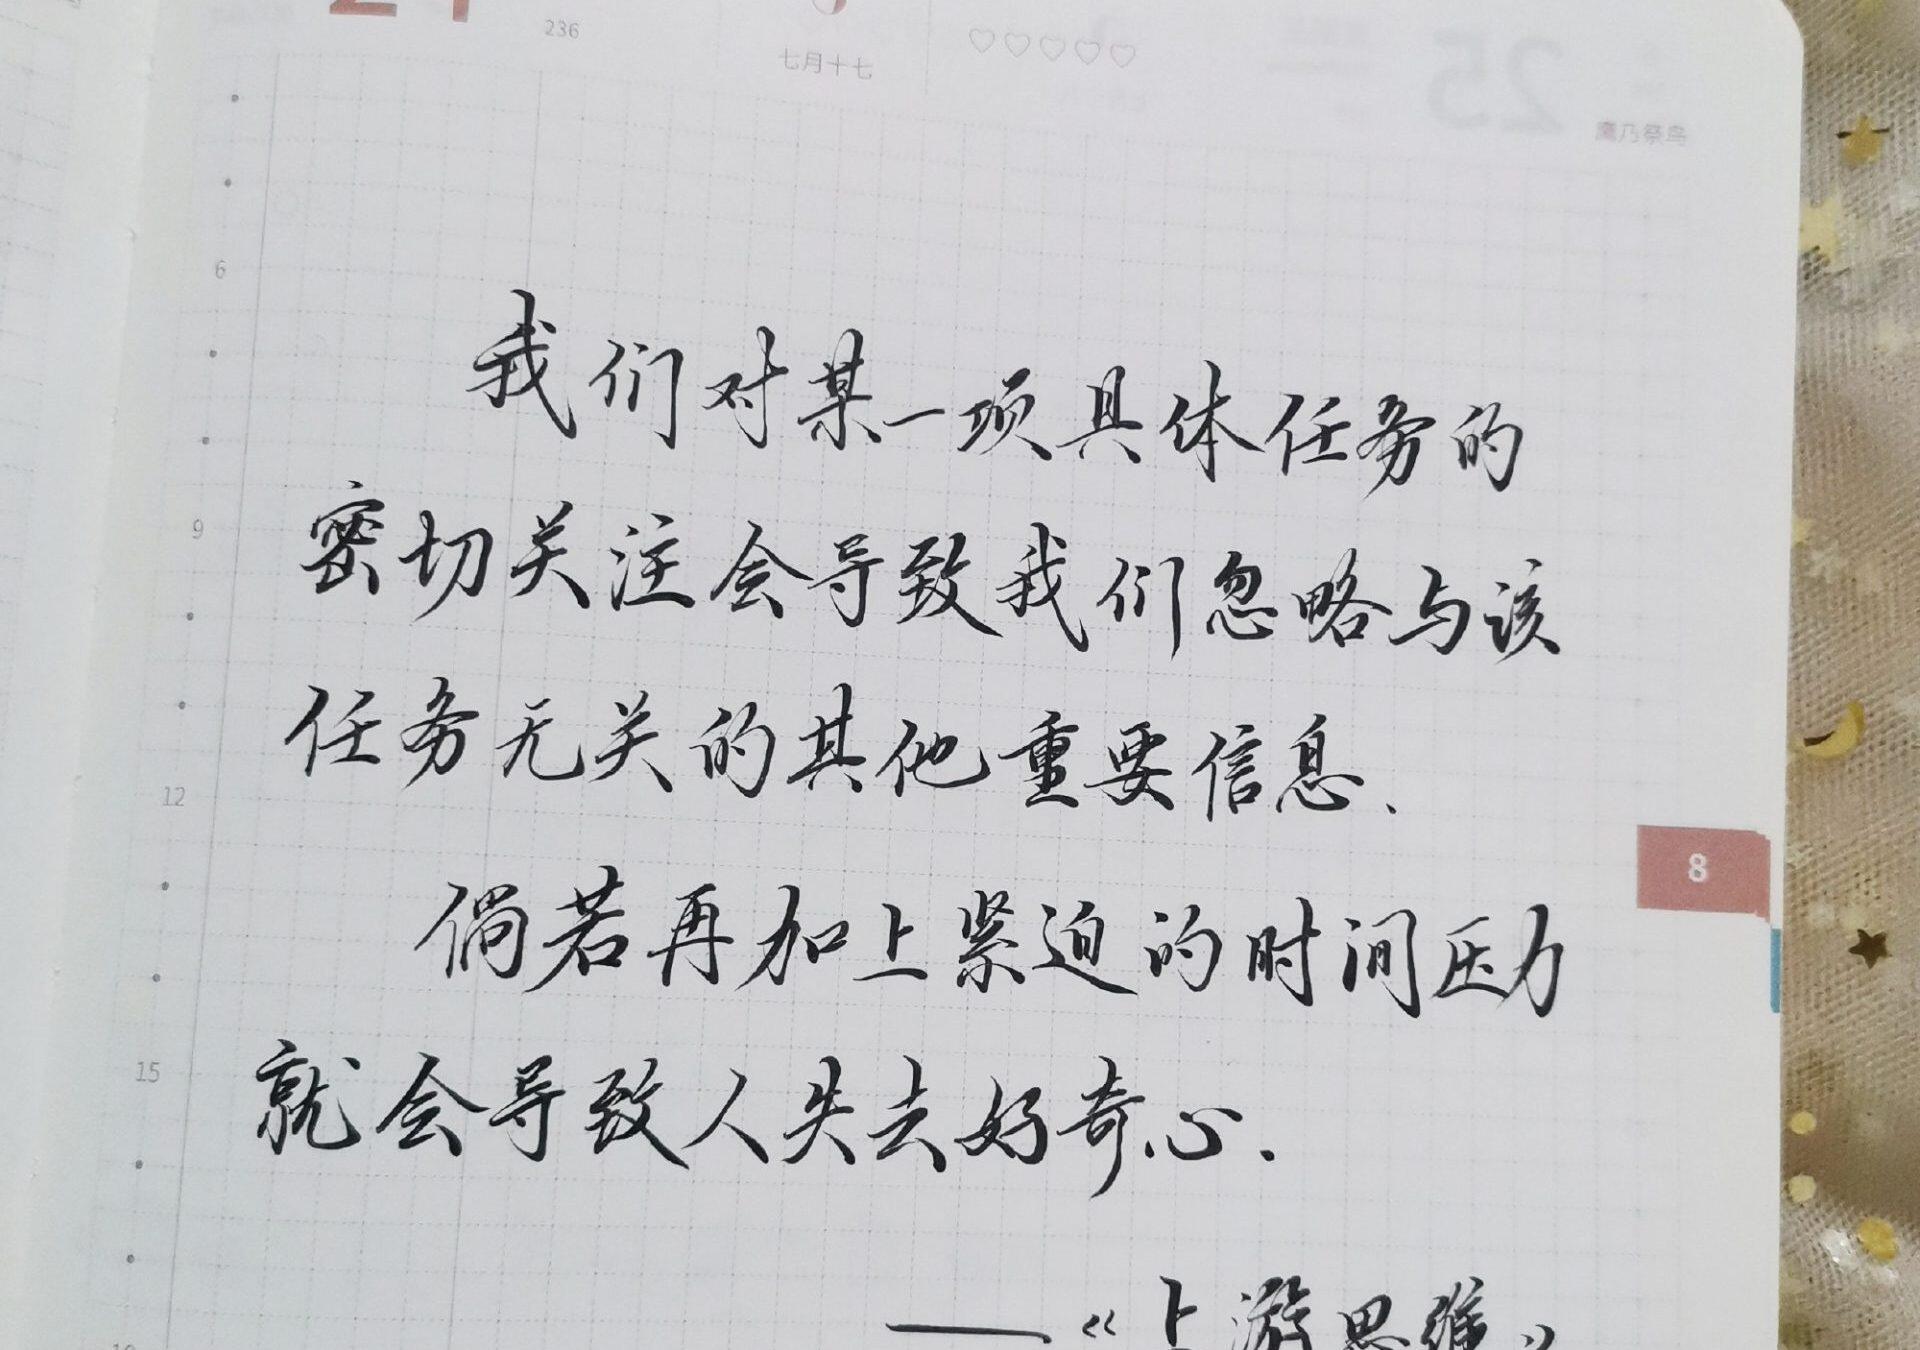 236
七月十七
鷹乃祭鸟
6
我们对某一项具体任务的
9
密切关注会导致我们忽略与该
任务无关的其他重要信息.
12
8
倘若再加上紧迫的时间压力
15
就会导致人失去好奇心.
——《上游思维》